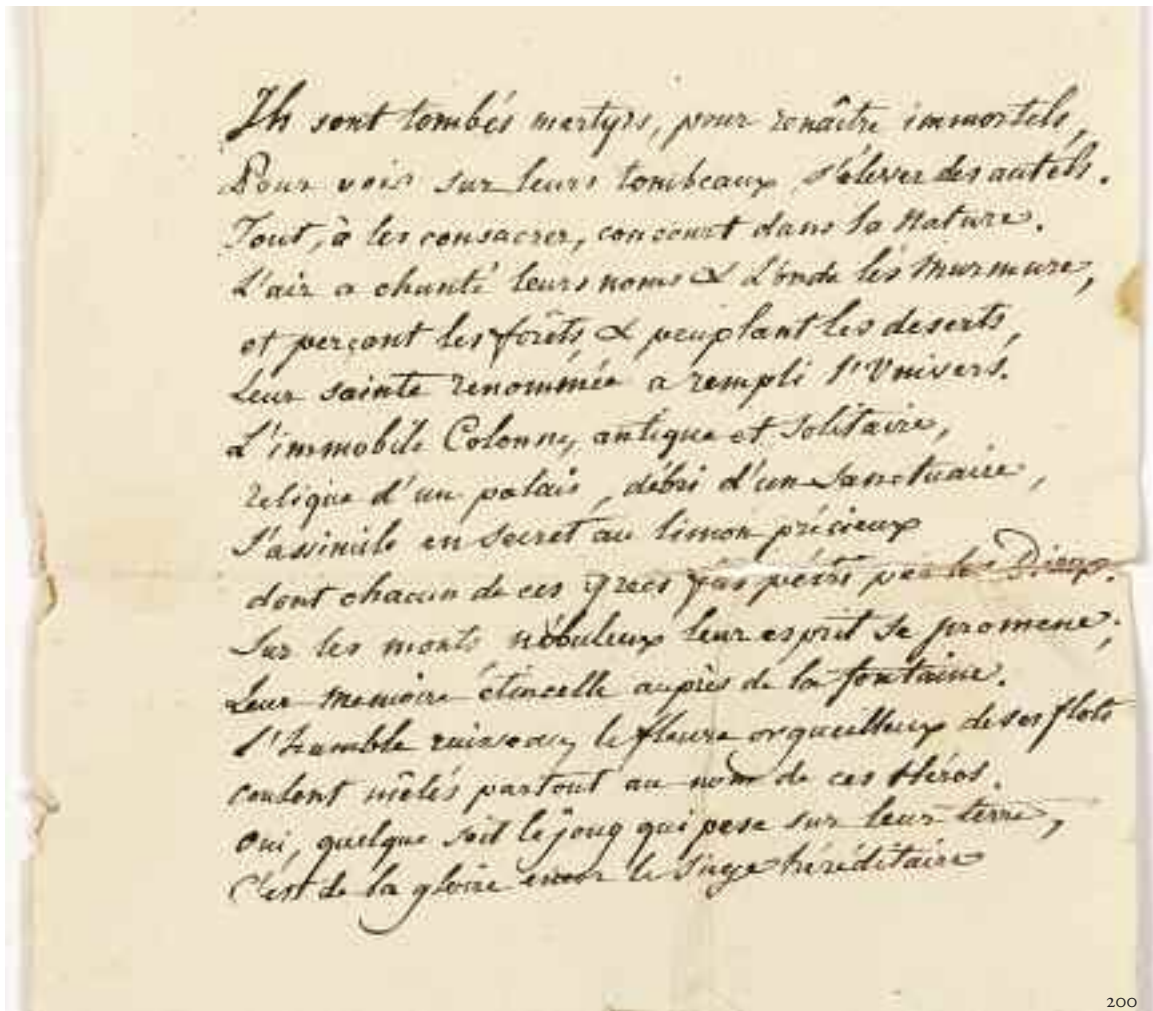 Ils sont tombés martyrs, pour renaître immortels,
Pour voir sur leurs tombeaux s'élever des autels.
Tout, à les consacrer, concourt dans la Nature.
L'air a chanté leurs noms & L'onde les Murmure,
et perçant les forêts & peuplant les deserts,
Leur sainte renommée a rempli l'Univers.
L'immobile Colonne, antique et solitaire,
relique d'un palais, débri d'un Sanctuaire,
S'assimile en secret au limon précieux
dont chacun de ces grecs fut pétri par les Dieux.
Sur les monts nébuleux leur esprit se promene;
Leur Memoire étincelle auprès de la fontaine.
l'humble ruisseau, le fleuve orgueilleux de ses flots
coulent mêlés partout au nom de ces Héros.
Oui, quelque soit le joug qui pese sur leur terre,
C'est de la gloire encor le Siege héréditaire
200